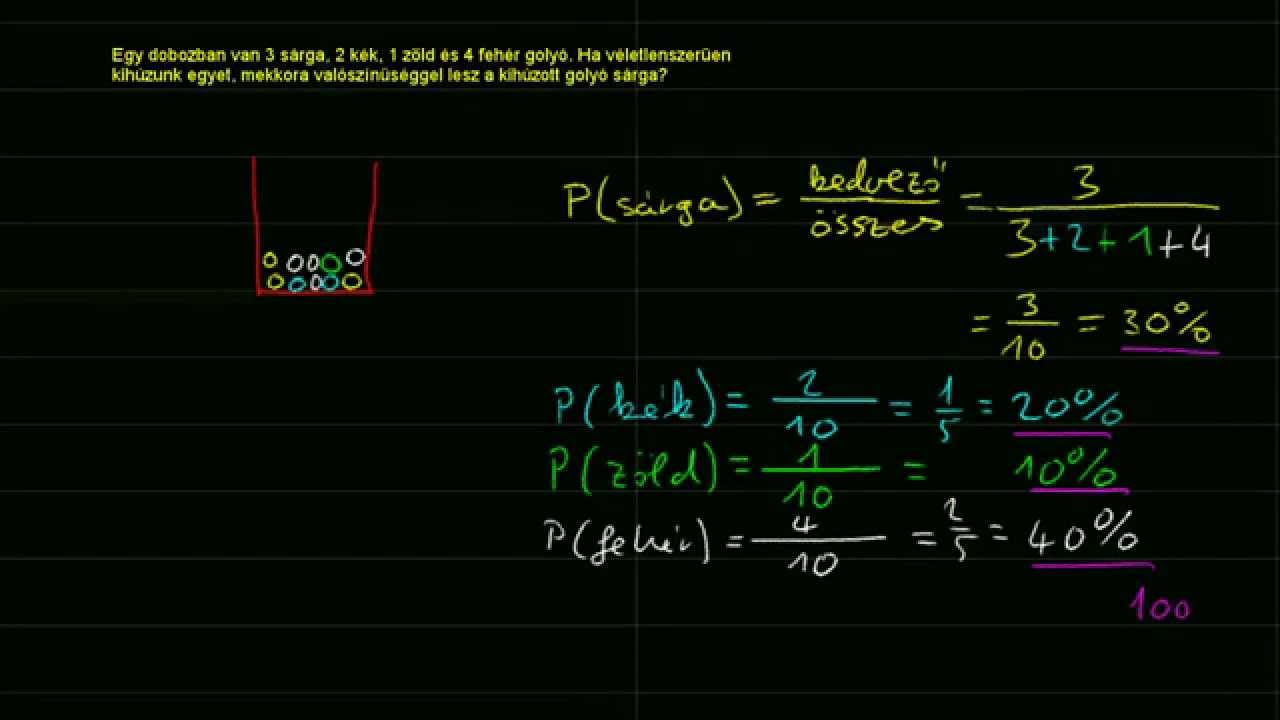 Egy dobozban van 3 sárga, 2 kék, 1 zöld és 4 fehér golyó. Ha véletlenszerűen
kihúzunk egyet, mekkora valószínűséggel lesz a kihúzott golyó sárga?
P(sárga) = kedvező/összes = 3/(3+2+1+4)
= 3/10 = 30%
P(kék) = 2/10 = 1/5 = 20%
P(zöld) = 1/10 = 10%
P(fehér) = 4/10 = 2/5 = 40%
100